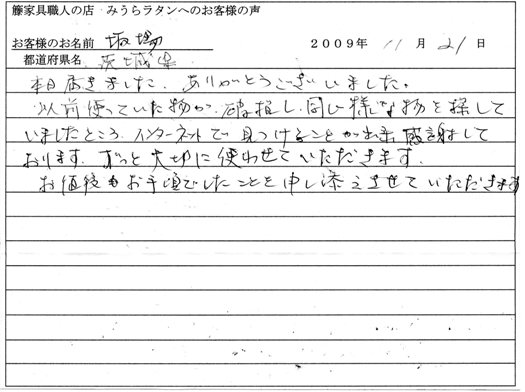 籐家具職人の店・みうらラタンへのお客様の声
お客様のお名前 堀場 2009年 11月 21日
都道府県名 茨城県
本日届きました。ありがとうございました。
以前使っていた物が破損し、同じ様な物を探して
いましたところ、インターネットで見つけることが出来、感謝して
おります。ずっと大切に使わせていただきます。
お値段もお手頃でしたことを申し添えさせていただきます